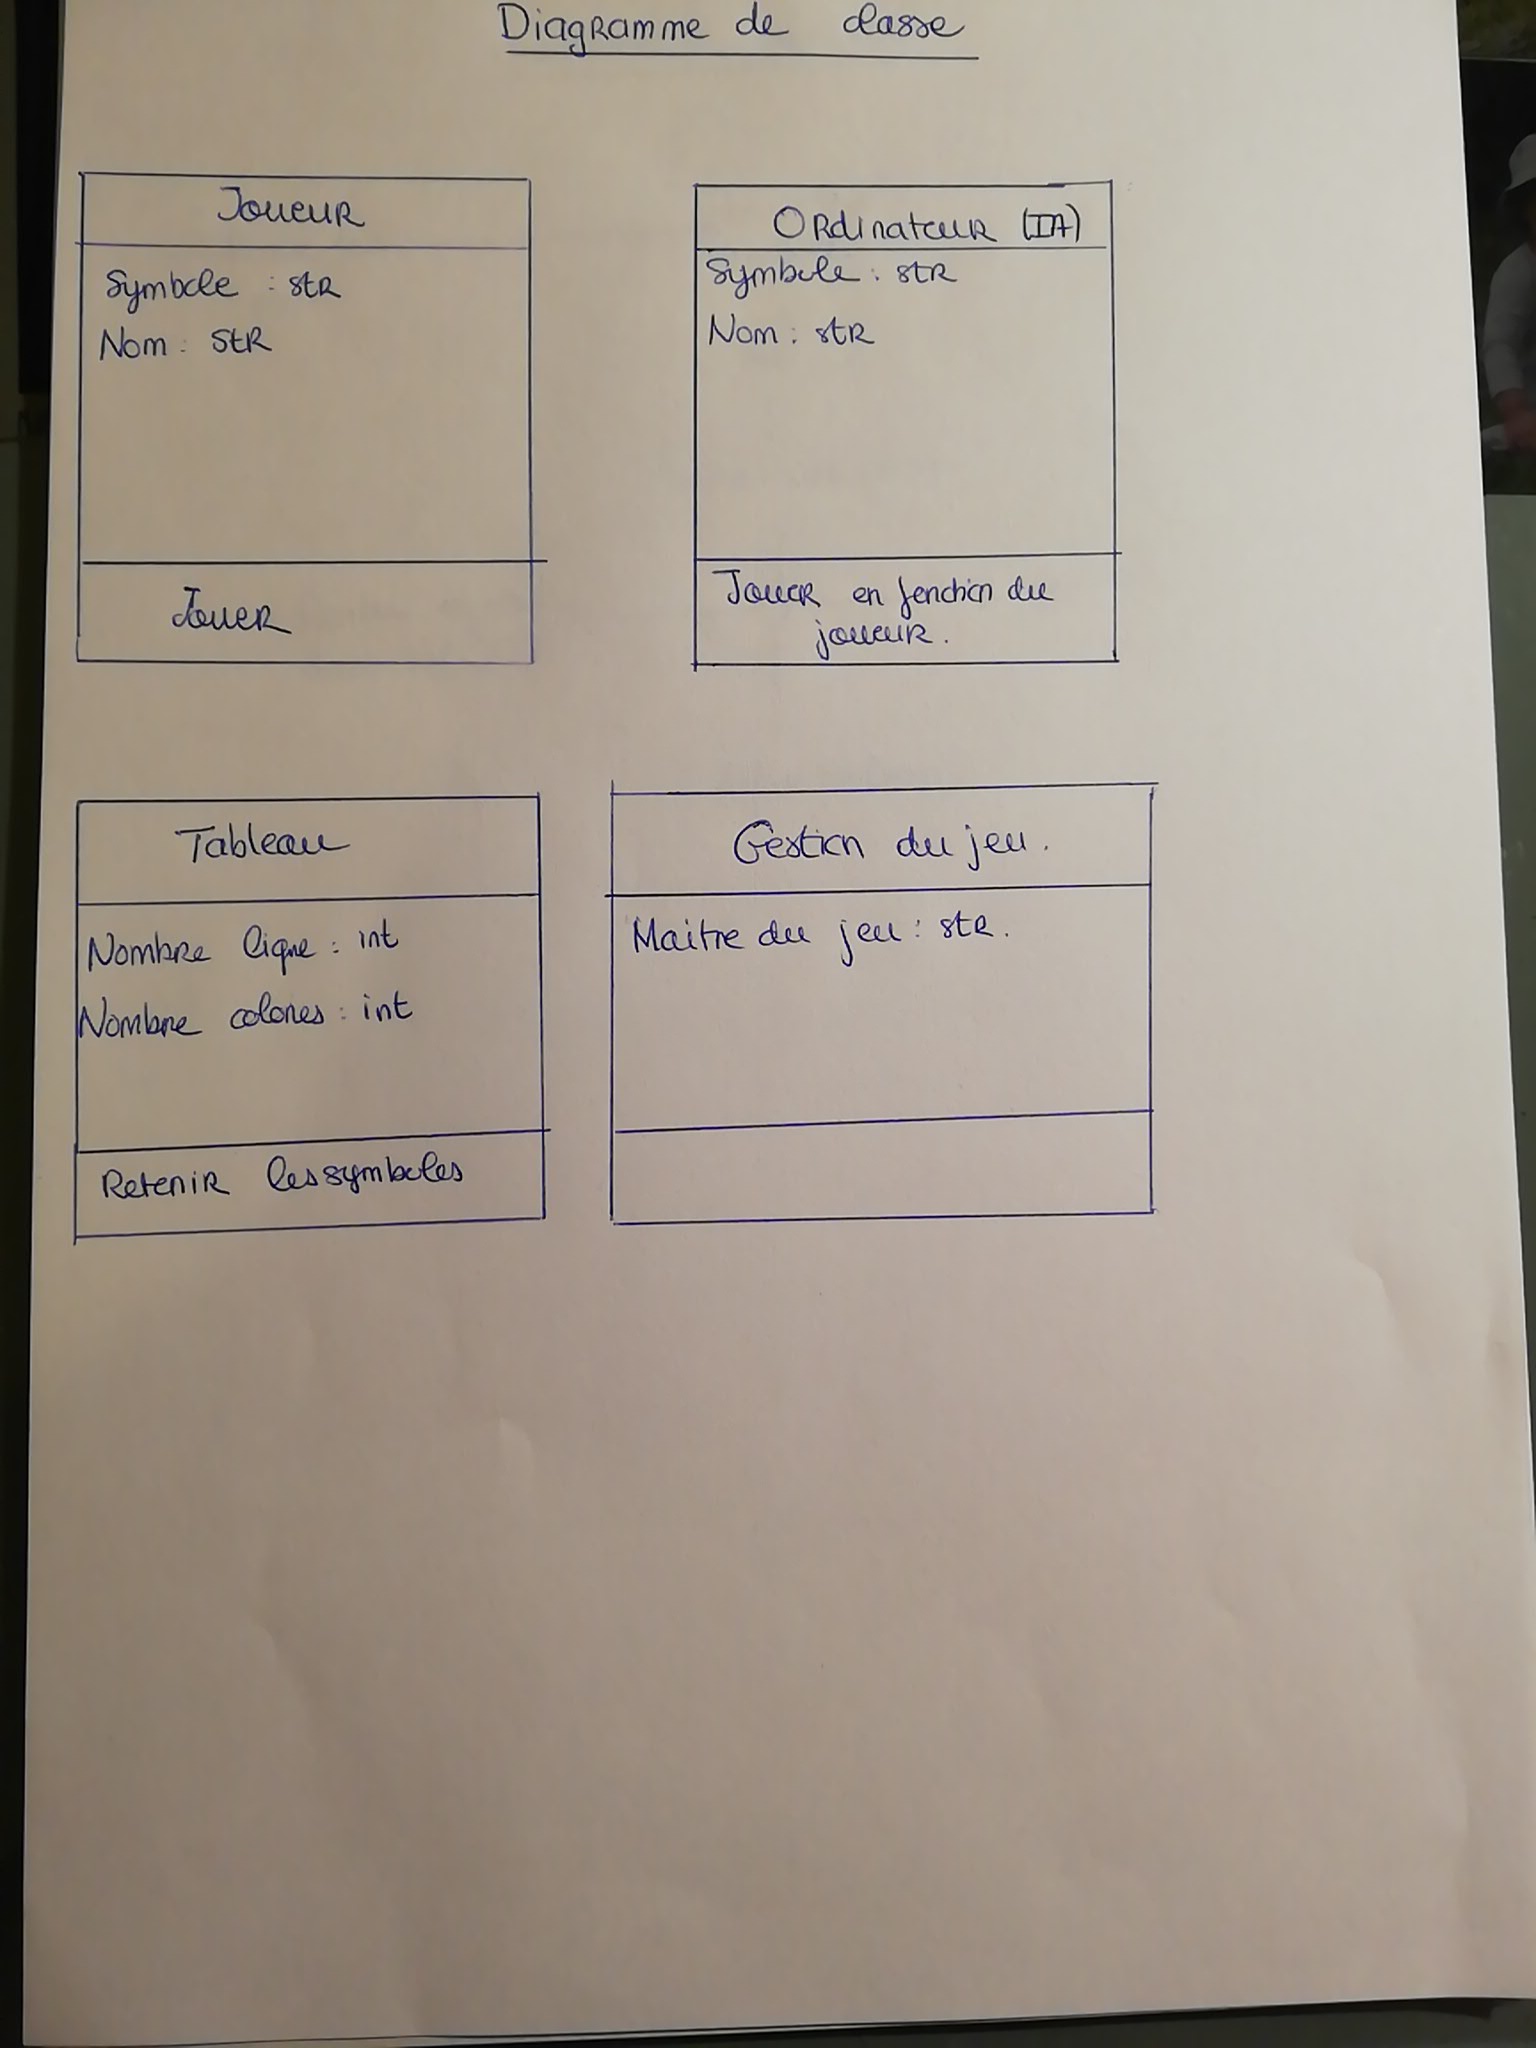 Diagramme de classe
Joueur
Symbole : str
Nom : str
Jouer
Ordinateur (IA)
Symbole : str
Nom : str
Jouer en fonction du
joueur.
Tableau
Nombre ligne : int
Nombre colones : int
Retenir les symboles
Gestion du jeu.
Maitre du jeu : str.